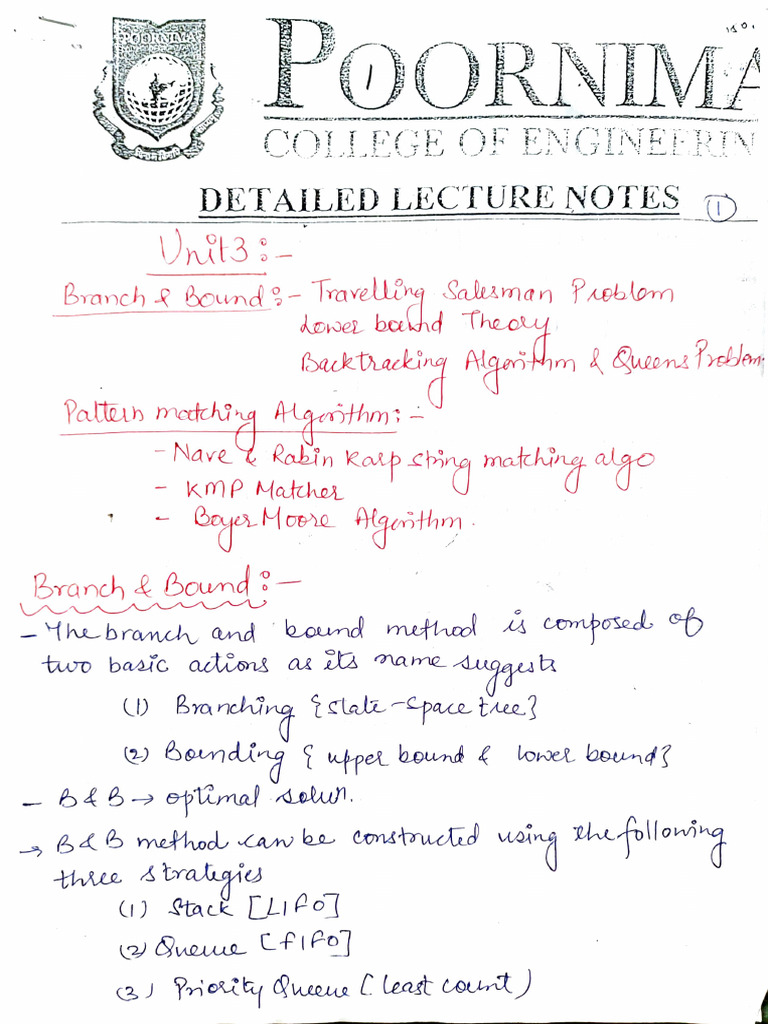 POORNIMA
1
COLLEGE OF ENGINEERIN
DETAILED LECTURE NOTES
1
Unit3:-
Branch & Bound:- Travelling Salesman Problem
Lower bound Theory
Backtracking Algorithm & Queens Problem
Pattern matching Algorithm:-
- Nave & Rabin Karp string matching algo
- KMP Matcher
- Boyer Moore Algorithm.
Branch & Bound:-
- The branch and bound method is composed of
two basic actions as its name suggests
(1) Branching {state-space tree}
(2) Bounding { upper bound & lower bound}
- B & B → optimal solun.
→ B & B method can be constructed using the following
three strategies
(1) Stack [LIFO]
(2) Queue [FIFO]
(3) Priority Queue [least count)